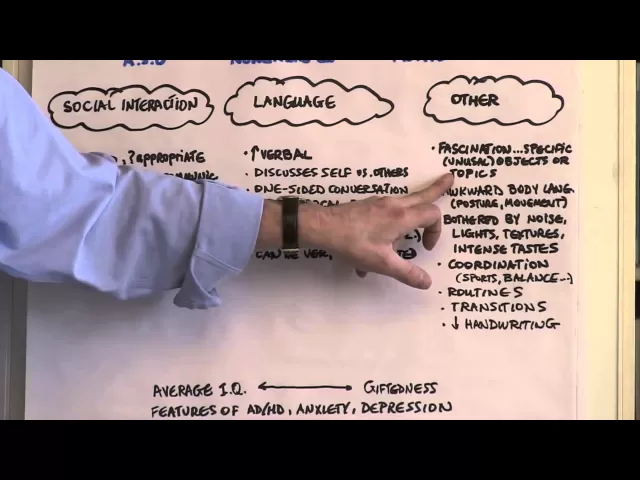 A.S.D
SOCIAL INTERACTION
LANGUAGE
OTHER
, ? appropriate
• ↑ VERBAL
• DISCUSSES SELF vs. OTHERS
ONE-SIDED CONVERSATION
CAN BE VER
• FASCINATION...SPECIFIC
(UNUSUAL) OBJECTS OR
TOPICS
AWKWARD BODY LANG.
(POSTURE, MOVEMENT)
BOTHERED BY NOISE,
LIGHTS, TEXTURES,
INTENSE TASTES
• COORDINATION
(SPORTS, BALANCE...)
• ROUTINES
• TRANSITIONS
• ↓ HANDWRITING
AVERAGE I.Q. ↔ GIFTEDNESS
FEATURES OF AD/HD, ANXIETY, DEPRESSION